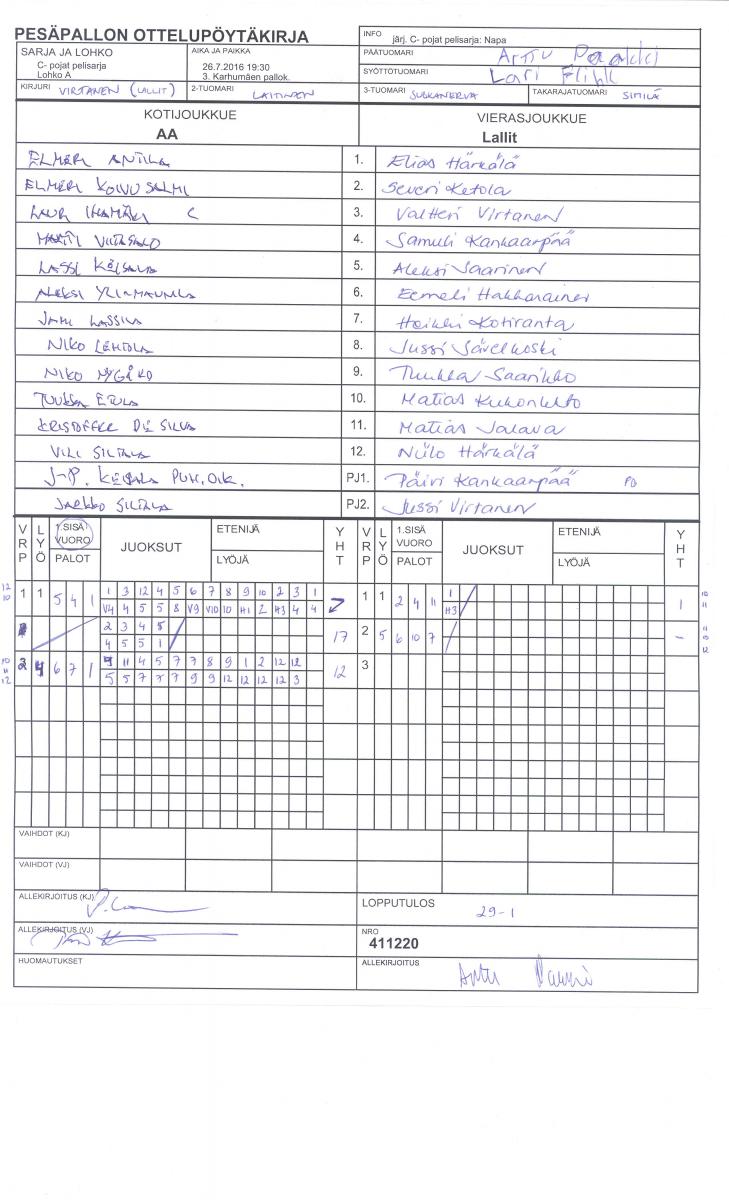 PESÄPALLON OTTELUPÖYTÄKIRJA
INFO järj. C- pojat pelisarja: Napa
SARJA JA LOHKO
C- pojat pelisarja
Lohko A
AIKA JA PAIKKA
26.7.2016 19:30
3. Karhumäen pallok.
PÄÄTUOMARI Arttu
SYÖTTÖTUOMARI Lari
KIRJURI VIRTANEN (LALLIT)
2-TUOMARI LAITINEN
3-TUOMARI
TAKARAJATUOMARI
KOTIJOUKKUE
AA
VIERASJOUKKUE
Lallit
ELMERI ANTILA 1. Elias Härkälä
ELMERI KOIVUSALMI 2. Severi Ketola
LAURI C 3. Valtteri Virtanen
4. Samuli Kankaanpää
LASSI 5. Aleksi Saarinen
ALEKSI 6. Eemeli Hakkarainen
LASSILA 7. Heikki Kotiranta
NIKO LEHTOLA 8. Jussi Sävelkoski
NIKO NYGÅRD 9. Tuukka Saarikko
TUUKKA ETULA 10. Matias Kukonlehto
KRISTOFFER DE SILVA 11. Matias Jalava
VILI SILTALA 12. Niilo Härkälä
J-P. KEISALA PUH.OIK. PJ1. Päivi Kankaanpää
JARKKO SILTALA PJ2. Jussi Virtanen
VRP LYÖ 1.SISÄ VUORO PALOT JUOKSUT ETENIJÄ LYÖJÄ YHT VRP LYÖ 1.SISÄ VUORO PALOT JUOKSUT ETENIJÄ LYÖJÄ YHT
1 1 5 4 1 1 3 12 4 5 6 7 8 9 10 2 3 1 1 1 2 4 11 1 1
V4 4 5 5 8 V9 V10 10 H1 2 H3 4 4 H3
2 3 4 5 17 2 5 6 10 7 -
4 5 5 1
4 6 7 1 4 11 4 5 7 7 8 9 1 2 12 12 12 3
5 5 7 7 7 9 9 12 12 12 12 3
VAIHDOT (KJ)
VAIHDOT (VJ)
ALLEKIRJOITUS (KJ)
LOPPUTULOS 29-1
ALLEKIRJOITUS (VJ)
NRO
411220
HUOMAUTUKSET
ALLEKIRJOITUS